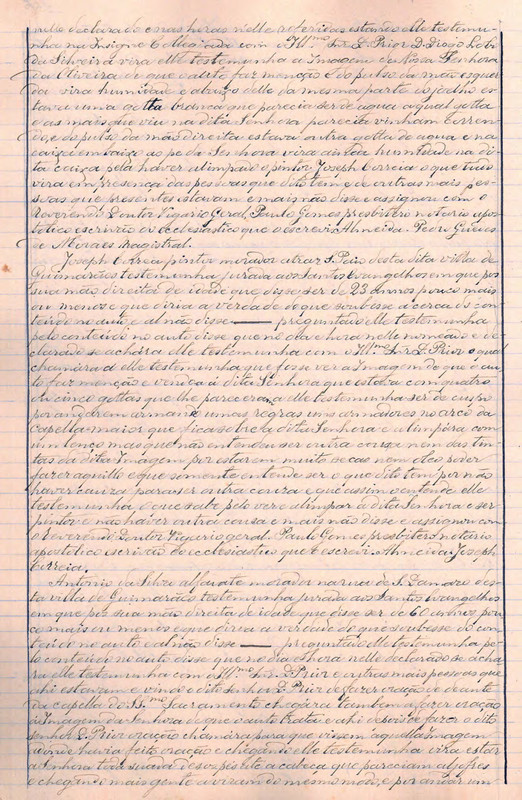 nelle declarado e nas horas nelle referidas estando elle testemu-
nha na Insigne Collegiada com o Illmo Snr D. Prior D. Diogo Lobo
da Silveira vira elle testemunha a Imagem de Nossa Senhora
da Oliveira de que o auto faz menção e do pulso da mão esquer-
da vira humidade e abaixo delle da mesma parte do joelho es-
tava uma gotta branca que parecia ser de agua a qual gotta
e as mais que viu na dita Senhora parecia vinham corren-
do, e do pulso da mão direita estava outra gotta de agua e na
caixa em baixo ao pé da Senhora vira ainda humidade na di-
ta caixa pela haver alimpado o pintor Joseph Correia o que tudo
vira em presença das pessoas que dito tem e de outras mais pes-
soas que presentes estavam e mais não disse e assignou com o
Reverendo Doutor Vigario Geral, Paulo Gomes presbitero notario apos-
tolico escrivão do ecclesiastico que o escrevi. Almeida. Pedro
de Moraes Magistral.
Joseph Correa pintor morador atraz S. Paio desta dita villa de
Guimarães testemunha jurada aos Santos Evangelhos em que poz
sua mão direita de idade que disse ser de 23 annos pouco mais
ou menos e que diria a verdade do que soubesse e acerca do con-
teúdo no auto e al não disse — preguntado elle testemunha
pelo conteúdo no auto disse que no dia e hora nelle nomeado e de-
clarado se achára elle testemunha com o Illmo Snr D. Prior o qual
chamára a elle testemunha que fosse ver a Imagem de que o au-
to faz menção e vendo a dita Senhora que estava com quatro
ou cinco gottas que lhe pareceram a elle testemunha ser de cuspo
por andarem armando umas regras uns armadores no arco da
capella maior que fica sobre a dita Senhora e alimpára com
um lenço mas que não entendeu ser outra cousa nem das tin-
tas da dita Imagem por estarem muito seccas nem oleo poder
fazer aquillo e que somente entende ser o que dito tem por não
haver causa para ser outra cousa e que assim o entende elle
testemunha o que sabe pelo ver e alimpar á dita Senhora e ser
pintor e não haver outra cousa e mais não disse e assignou com
o reverendo Doutor Vigario geral. Paulo Gomes presbitero notario
apostolico escrivão do ecclesiastico que o escrevi. Almeida. Joseph
Correia.
Antonio da Silva alfaiate morador na rua de S. Damaso des-
ta villa de Guimarães testemunha jurada aos Santos evangelhos
em que poz sua mão direita de idade que disse ser de 60 annos pou-
co mais ou menos e que diria a verdade do que soubesse do con-
teúdo no auto e al não disse — preguntado elle testemunha pe-
lo conteúdo no auto disse que no dia e hora nelle declarado se acha-
ra elle testemunha com o Illmo Snr D. Prior e outras mais pessoas que
ahi estavam e vindo o dito senhor D. Prior de fazer oração de deante
da capella do SSmo Sacramento chegára tambem a fazer oração
á Imagem da Senhora de que o auto trata e ahi depois de fazer o dito
senhor D. Prior oração chamára para que vissem aquella Imagem
adonde havia feito oração e chegando elle testemunha vira estar
a Senhora toda suada desde os pés até a cabeça que pareciam aljofres
e chegando mais gente a viram do mesmo modo, e por andar um